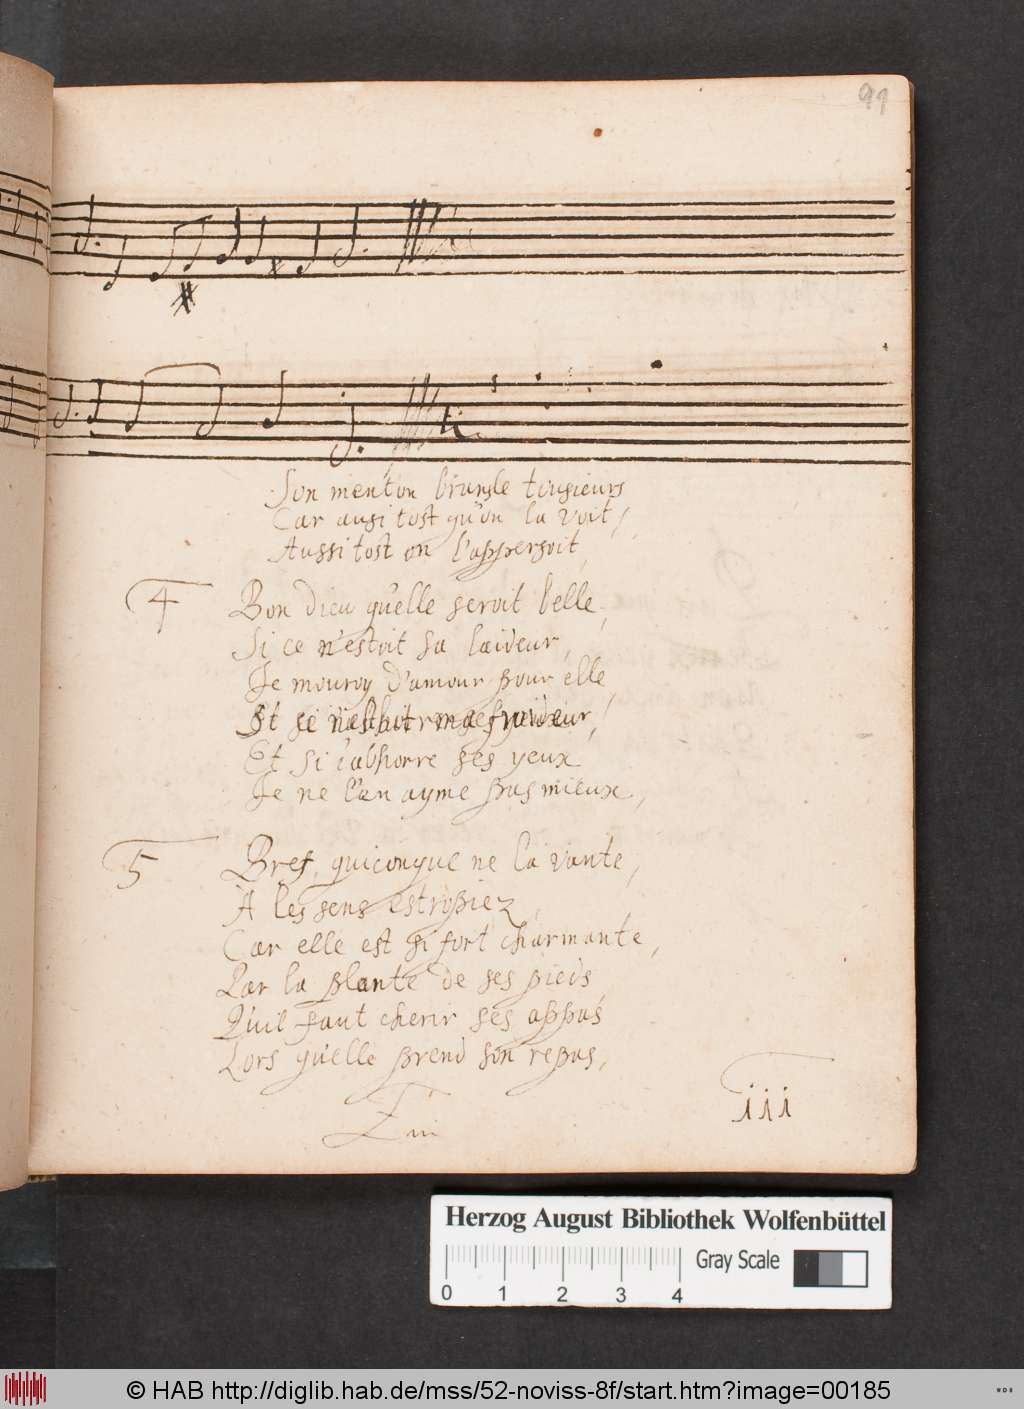 99
Son menton bransle tousieurs
Car ausi tost qu'on la voit,
Aussi tost on l'appersoit,
4
Bon dieu qu'elle seroit belle,
Si ce n'estoit sa laideur,
Je mouroy d'amour pour elle,
Et si n'estoit ma froideur,
Et si i'abhorre ses yeux
Je ne l'an ayme pas mieux,
5
Bref, quiconque ne la vante,
A les sens estropiez,
Car elle est si fort charmante,
Par la plante de ses pieds
Qu'il faut cherir ses appas
Lors qu'elle prend son repas,
Fin
iii
Herzog August Bibliothek Wolfenbüttel
Gray Scale
0 1 2 3 4
© HAB http://diglib.hab.de/mss/52-noviss-8f/start.htm?image=00185